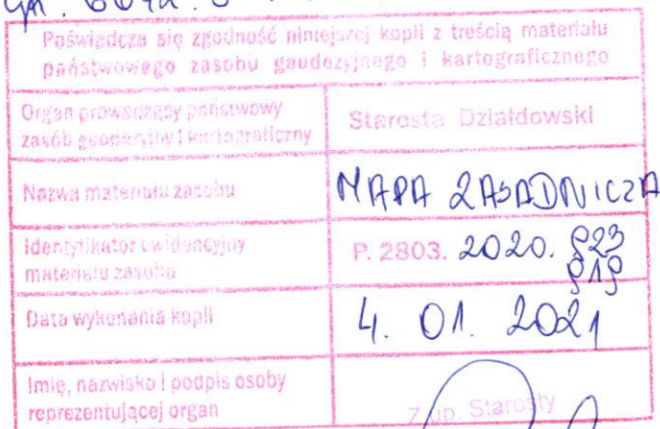 Poświadcza się zgodność niniejszej kopii z treścią materiału
państwowego zasobu geodezyjnego i kartograficznego
Organ prowadzący państwowy
zasób geodezyjny i kartograficzny
Starosta Działdowski
Nazwa materiału zasobu
MAPA ZASADNICZA
Identyfikator ewidencyjny
materiału zasobu
P. 2803. 2020.
Data wykonania kopii
4. 01. 2021
Imię, nazwisko i podpis osoby
reprezentującej organ
Z up. Starosty